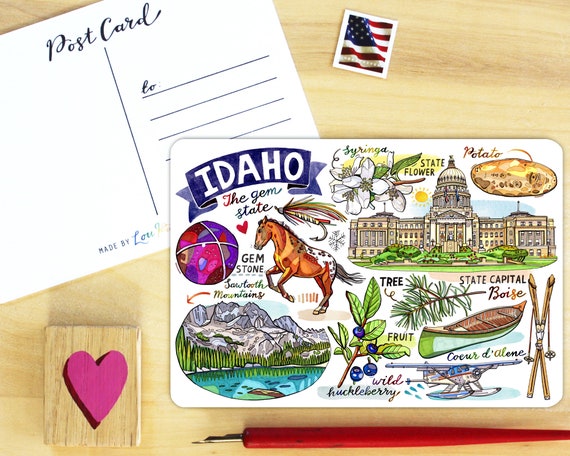 Post Card
to:
MADE BY Lou
IDAHO
The gem
state
GEM
STONE
Sawtooth
Mountains
Syringa
STATE
FLOWER
Potato
TREE
STATE CAPITAL
Boise
FRUIT
wild
huckleberry
Coeur d'Alene